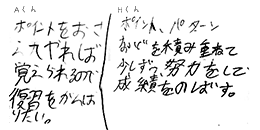 Aくん
ポイントをおさ
えれば
覚えられるので
復習をがんば
りたい。
Hくん
ポイント、パターン
などを積み重ねて
少しずつ、努力をして
成績をのばす。